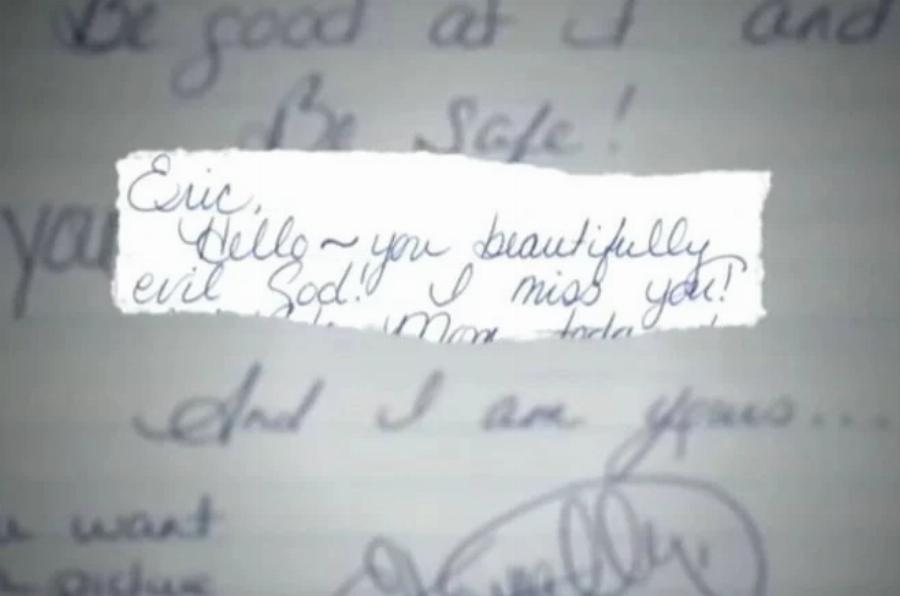 Be good at it and
Be Safe!
Eric,
Hello ~ you beautifully
evil God! I miss you!
Mom today
And I am yours...
want